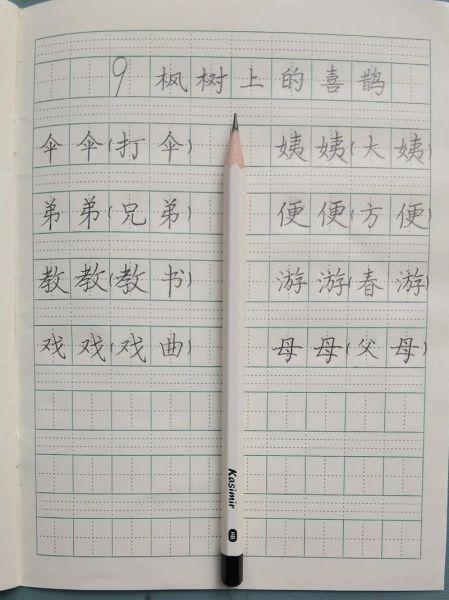 9 枫树上的喜鹊
伞伞(打伞) 姨姨(大姨)
弟弟(兄弟) 便便(方便)
教教(教书) 游游(春游)
戏戏(戏曲) 母母(父母)
Kasimir HB